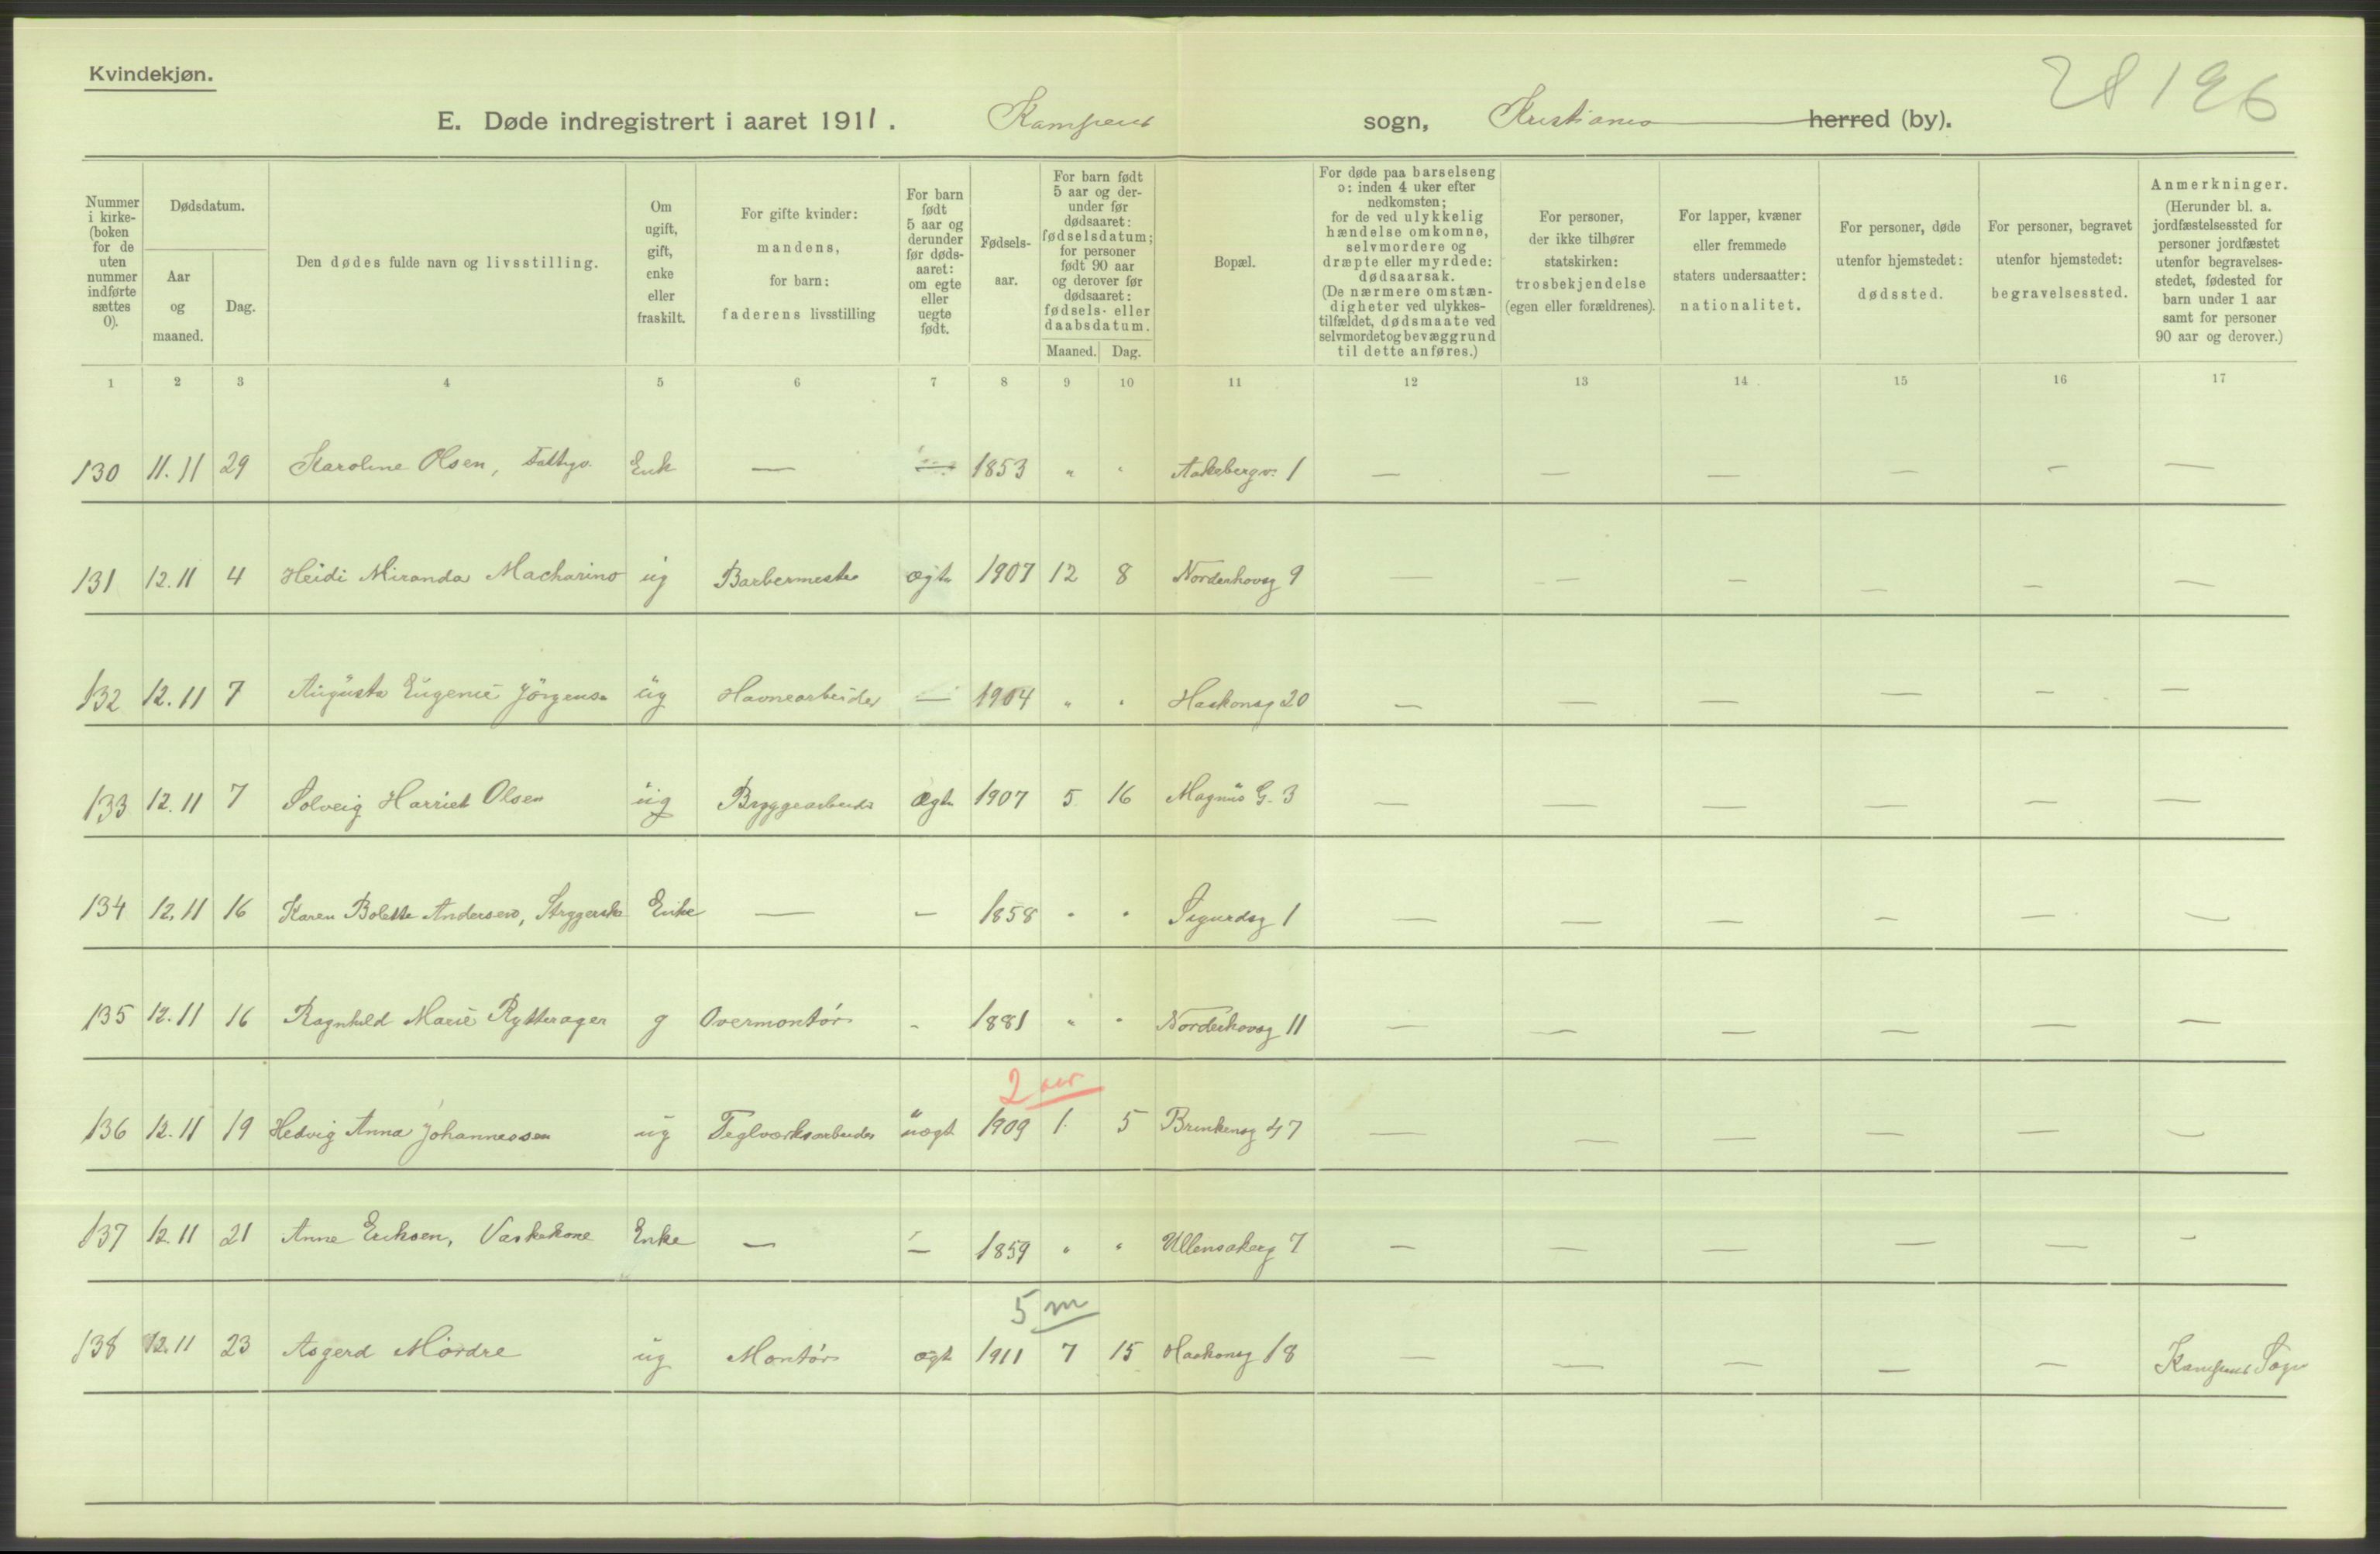 Kvindekjøn.
28 196
E. Døde indregistrert i aaret 1911. Kampens sogn, Kristiania herred (by).
Nummer i kirke- (boken for de uten nummer indførte sættes 0).
Dødsdatum.
Aar og maaned.
Dag.
Den dødes fulde navn og livsstilling.
Om ugift, gift, enke eller fraskilt.
For gifte kvinder: mandens, for barn: faderens livsstilling
For barn født 5 aar og derunder før døds- aaret: om egte eller uegte født.
Fødsels- aar.
For barn født 5 aar og der- under før dødsaaret: fødselsdatum; for personer født 90 aar og derover før dødsaaret: fødsels- eller daabsdatum.
Maaned. Dag.
Bopæl.
For døde paa barselseng ɔ: inden 4 uker efter nedkomsten; for de ved ulykkelig hændelse omkomne, selvmordere og dræpte eller myrdede: dødsaarsak. (De nærmere omstæn- digheter ved ulykkes- tilfældet, dødsmaate ved selvmordet og bevæggrund til dette anføres.)
For personer, der ikke tilhører statskirken: trosbekjendelse (egen eller forældrenes).
For lapper, kvæner eller fremmede staters undersaatter: nationalitet.
For personer, døde utenfor hjemstedet: dødssted.
For personer, begravet utenfor hjemstedet: begravelsessted.
Anmerkninger. (Herunder bl. a. jordfæstelsessted for personer jordfæstet utenfor begravelses- stedet, fødested for barn under 1 aar samt for personer 90 aar og derover.)
1 2 3 4 5 6 7 8 9 10 11 12 13 14 15 16 17
130 11.11 29 Karoline Olsen, Fattigv. Enk — — 1853 " " Aakebergv. 1 — — — — — —
131 12.11 4 Heidi Miranda Macharino ug Barbermester ægte 1907 12 8 Norderhovsg 9 — — — — — —
132 12.11 7 Augusta Eugenie Jörgensen ug Havnearbeider — 1904 " " Haakonsg 20 — — — — — —
133 12.11 7 Solveig Harriet Olsen ug Bryggearbeider Ægte 1907 5 16 Magnus G. 3 — — — — — —
134 12.11 16 Karen Bolette Andersen, Strygerske Enke — — 1858 " " Sigurdsg 1 — — — — — —
135 12.11 16 Ragnhild Marie Rytterager g Overmontör - 1881 " " Norderhovsg 11 — — — — — —
2 aar
136 12.11 19 Hedvig Anna Johannessen ug Teglværksarbeider uægt 1909 1. 5 Brinkensg 47 — — — — — —
137 12.11 21 Anne Eriksen, Vaskekone Enke — — 1859 " " Ullensakerg 7 — — — — — —
5 m
138 12.11 23 Asgerd Mördre ug Montör ægt 1911 7 15 Haakonsg 18 — — — — — Kampens Sogn